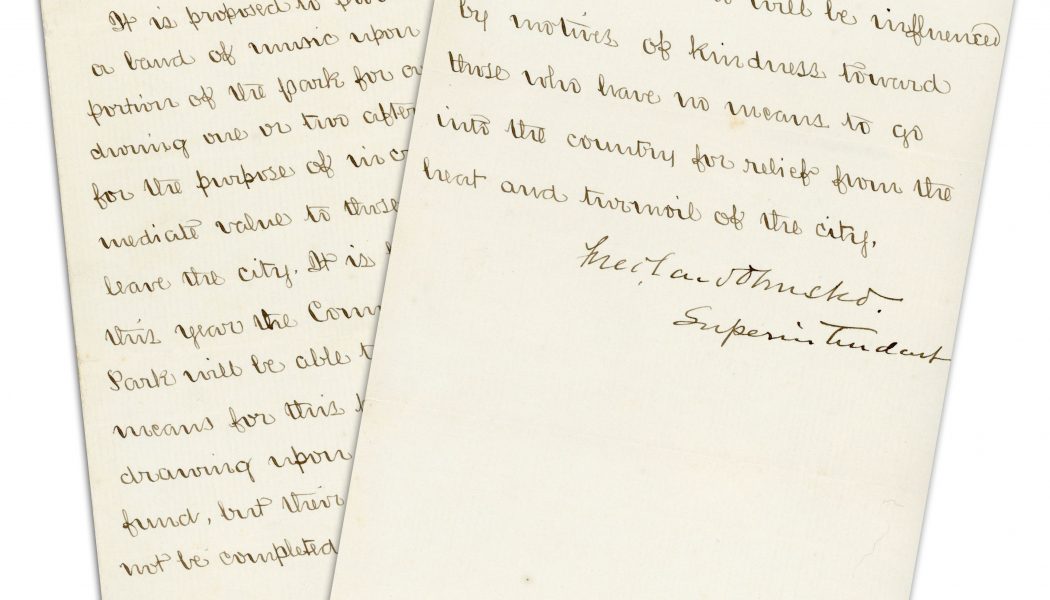 It is proposed to pro
a band of music upon
portion of the park for
during one or two after
for the purpose of inc
mediate value to those
leave the city. It is
this year the Com
Park will be able t
means for this
drawing upon
fund, but their
not be completed
will be influenced
by motives of kindness toward
those who have no means to go
into the country for relief from the
heat and turmoil of the city.
Fred. Law Olmsted.
Superintendent